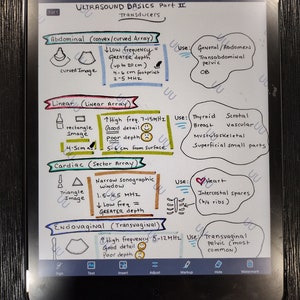 ULTRASOUND BASICS Part II
TRANSDUCERS
Abdominal (convex/curved Array)
↓Low frequency =
GREATER depth
(up to 20 cm)
4-6 cm footprint
2-5 MHz
curved Image
Use:
General/Abdomen
Transabdominal
pelvic
OB
Linear (Linear Array)
↑ High freq 7-15MHz
Good detail
Poor depth
5-6 cm from surface
rectangle
Image
4-5cm
Use:
Thyroid Scrotal
Breast vascular
Musculoskeletal
Superficial small parts
Cardiac (Sector Array)
Narrow sonographic
window
1.5-4.5 MHz
↓ Low freq =
GREATER depth
triangle
Image
Use:
Heart
Intercostal spaces
(b/w ribs)
Endovaginal (Transvaginal)
↑ High frequency 5-12MHz
Good detail
Poor depth
Use:
Transvaginal
Pelvic (most
common)
Text
Adjust
Markup
Hide
Watermark